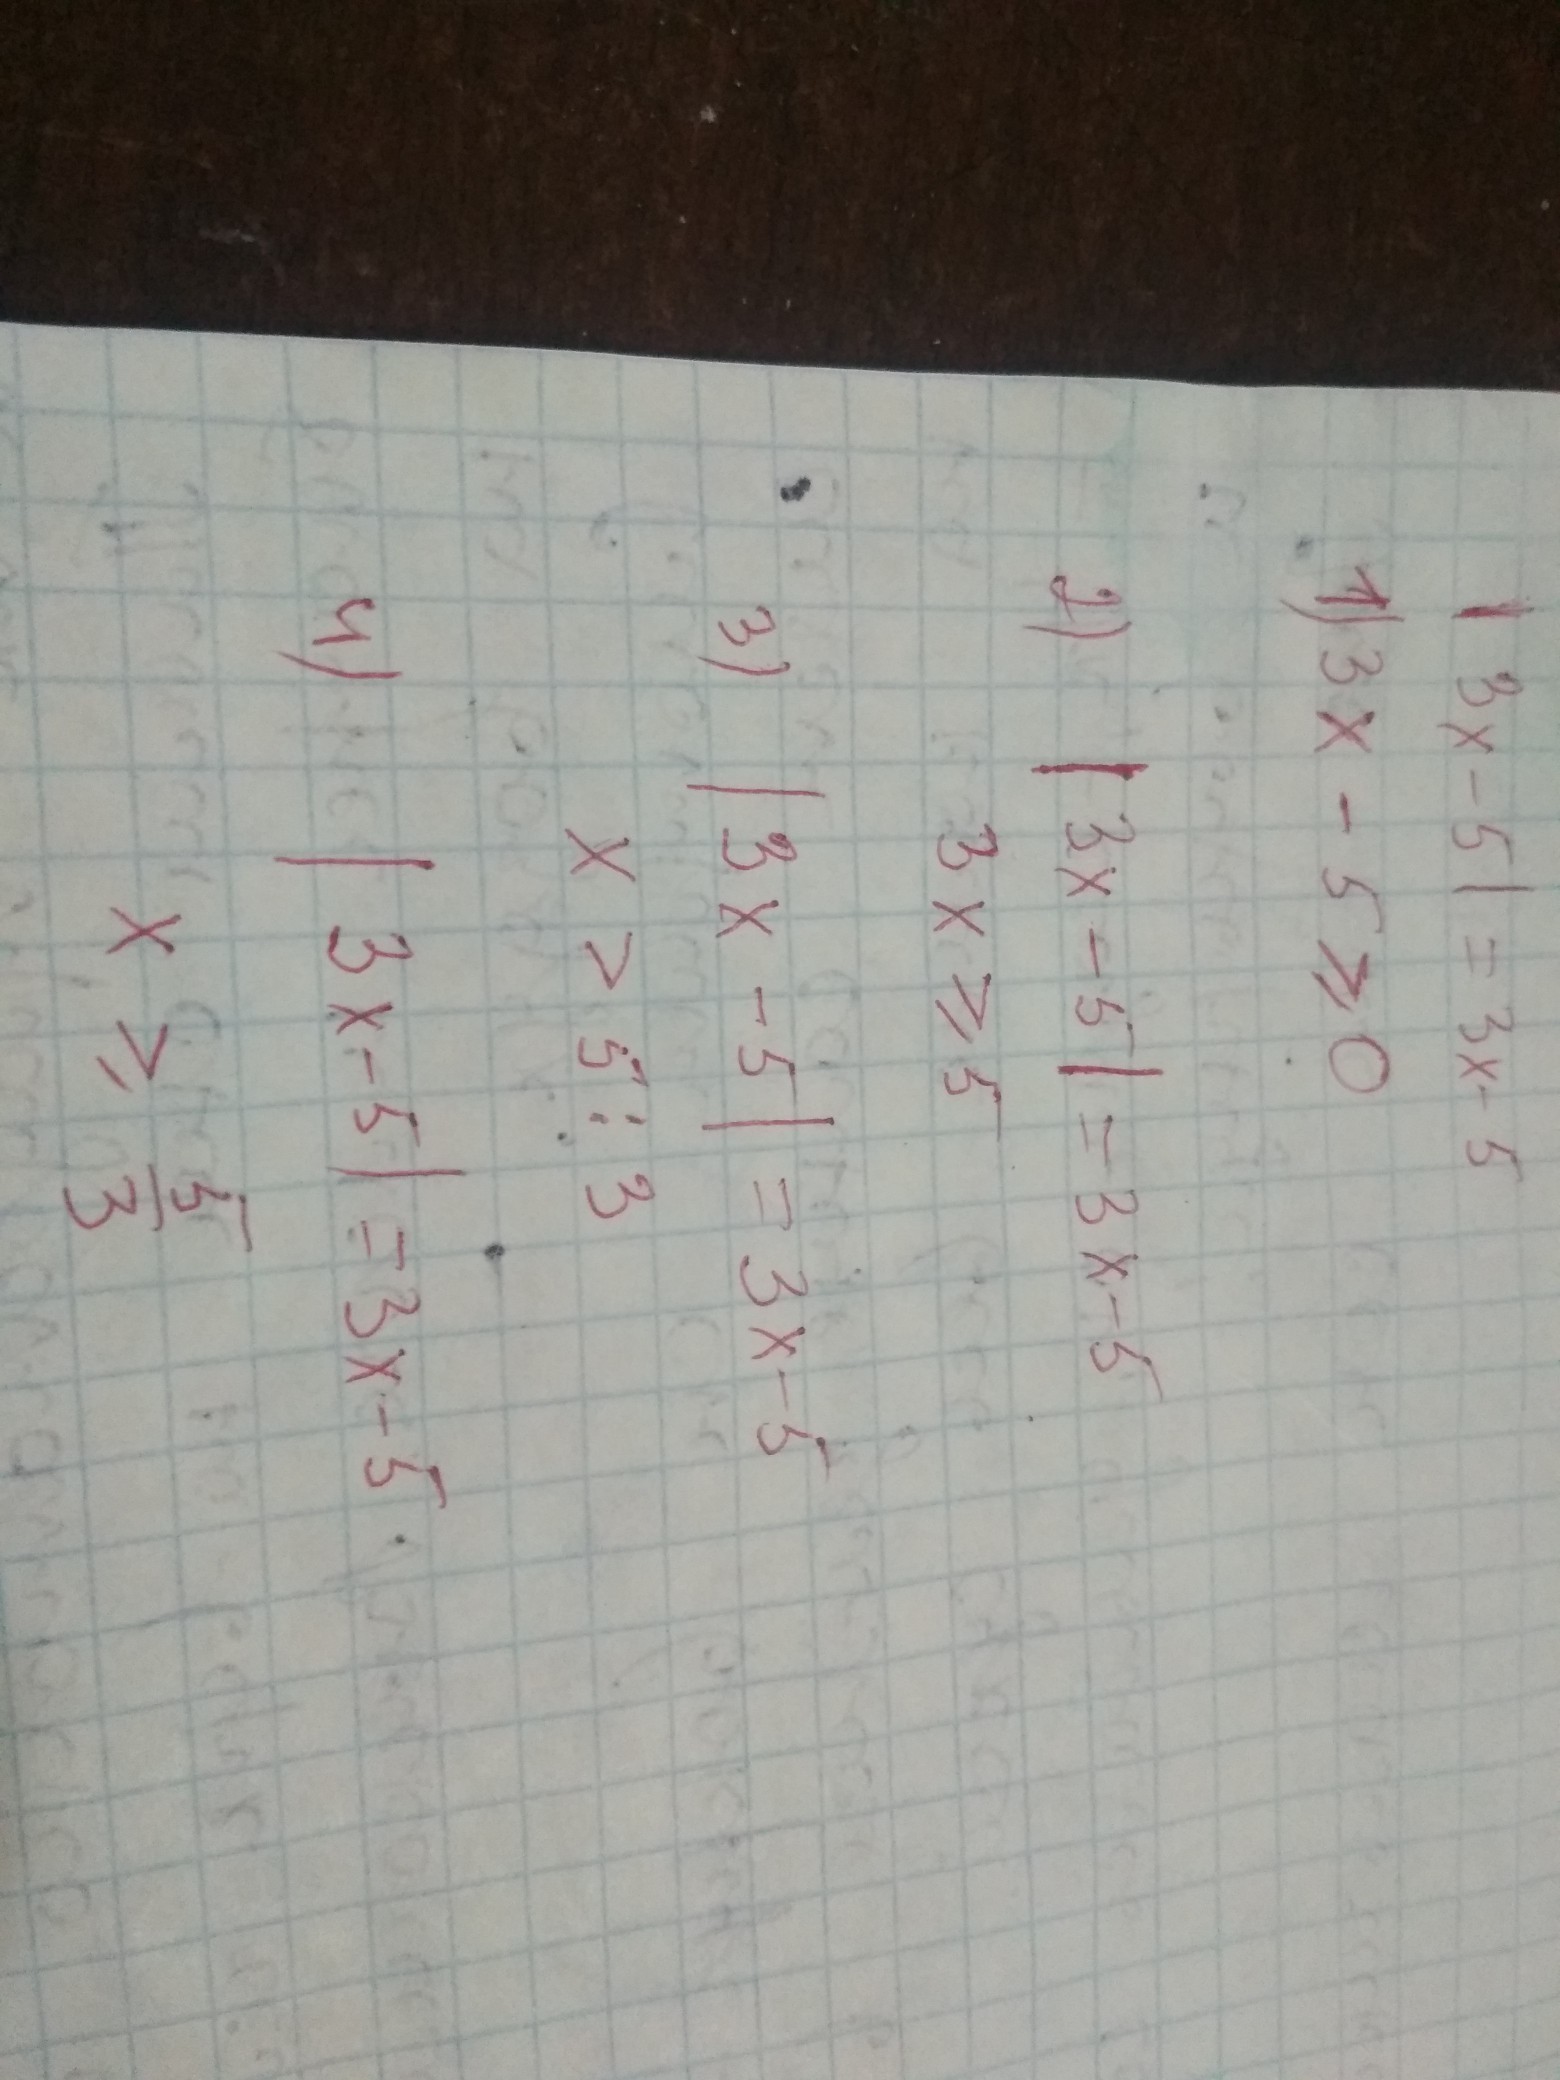 | 3x - 5 | = 3x - 5
1) 3x - 5 ⩾ 0
2) | 3x - 5 | = 3x - 5
3x ⩾ 5
3) | 3x - 5 | = 3x - 5
x > 5 : 3
4) | 3x - 5 | = 3x - 5
x ⩾ 5/3